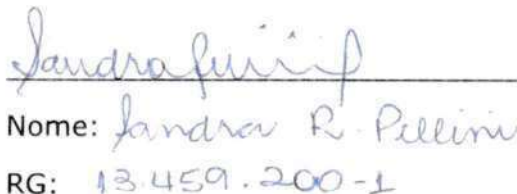 Nome: Sandra R. Pellini
RG: 13.459.200-1